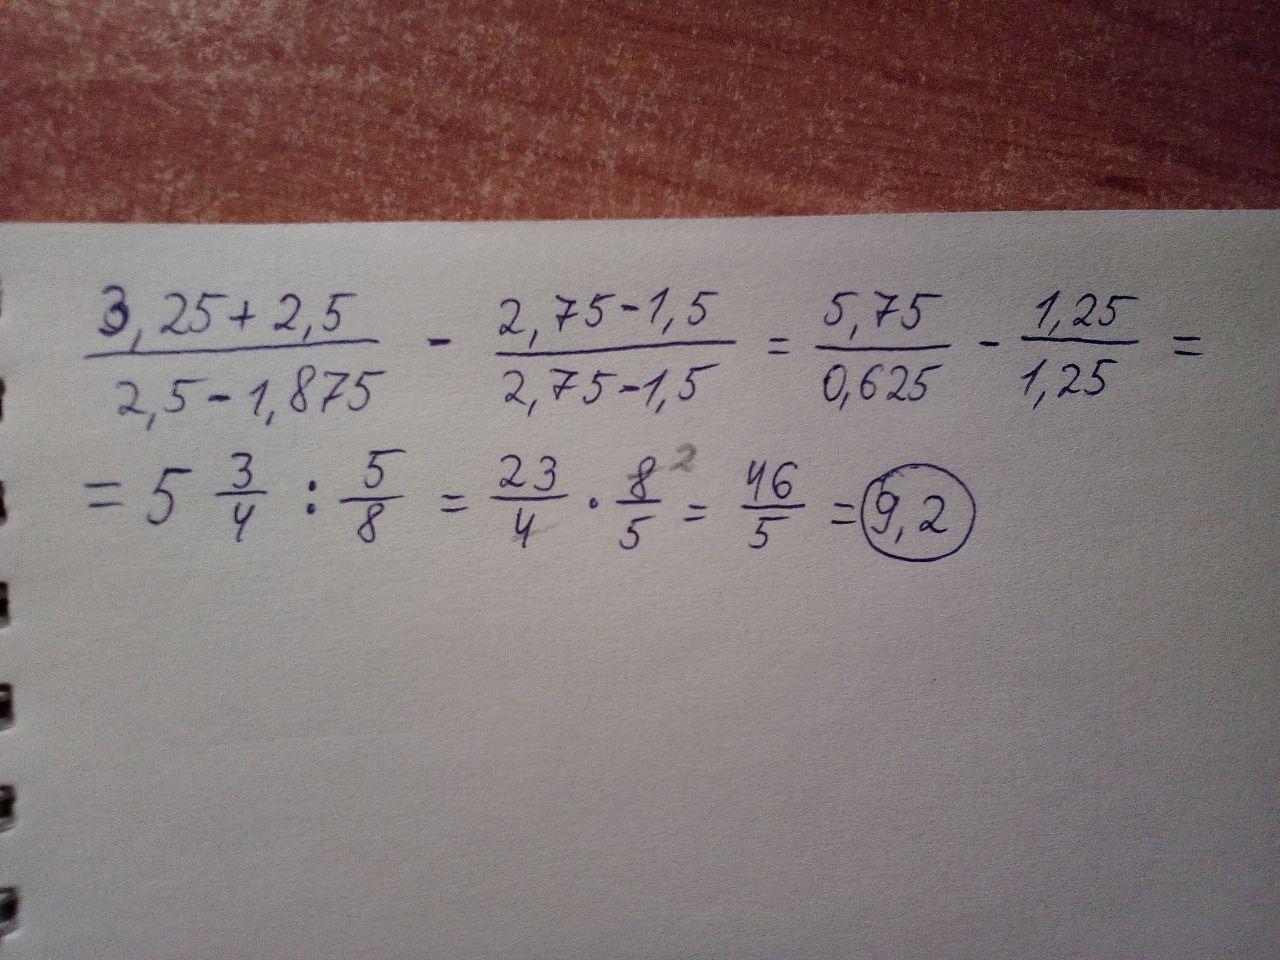 (3,25+2,5)/(2,5-1,875) - (2,75-1,5)/(2,75-1,5) = 5,75/0,625 - 1,25/1,25 =
= 5 3/4 : 5/8 = 23/4 · 8/5 ² = 46/5 = 9,2